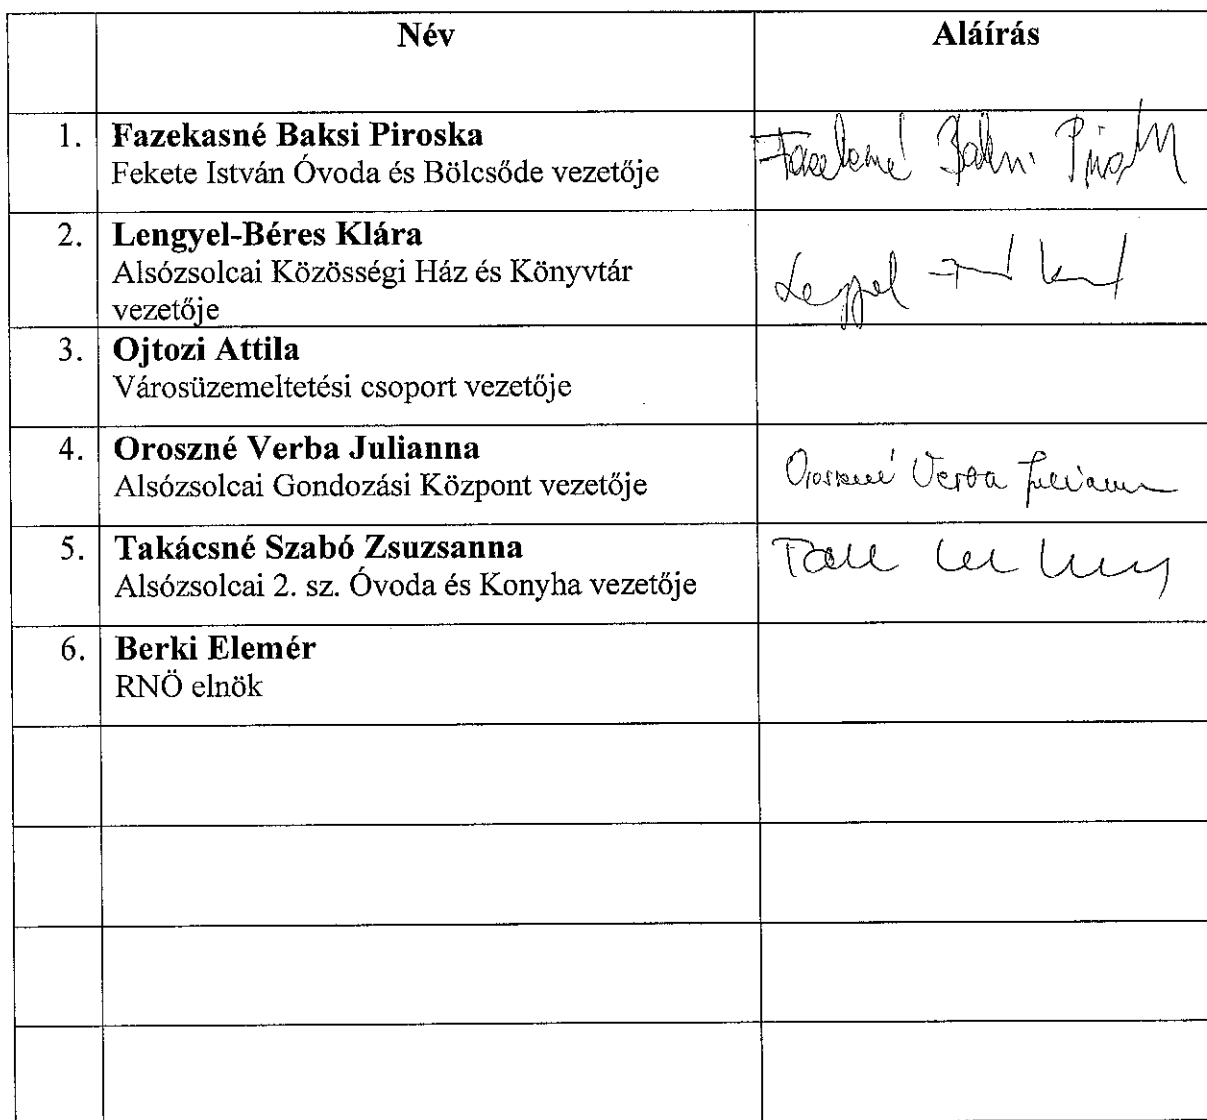 Név Aláírás
1. Fazekasné Baksi Piroska
Fekete István Óvoda és Bölcsőde vezetője
Fazekasné Baksi Piroska
2. Lengyel-Béres Klára
Alsózsolcai Közösségi Ház és Könyvtár
vezetője
Lengyel
3. Ojtozi Attila
Városüzemeltetési csoport vezetője
4. Oroszné Verba Julianna
Alsózsolcai Gondozási Központ vezetője
Oroszné Verba Julianna
5. Takácsné Szabó Zsuzsanna
Alsózsolcai 2. sz. Óvoda és Konyha vezetője
6. Berki Elemér
RNÖ elnök